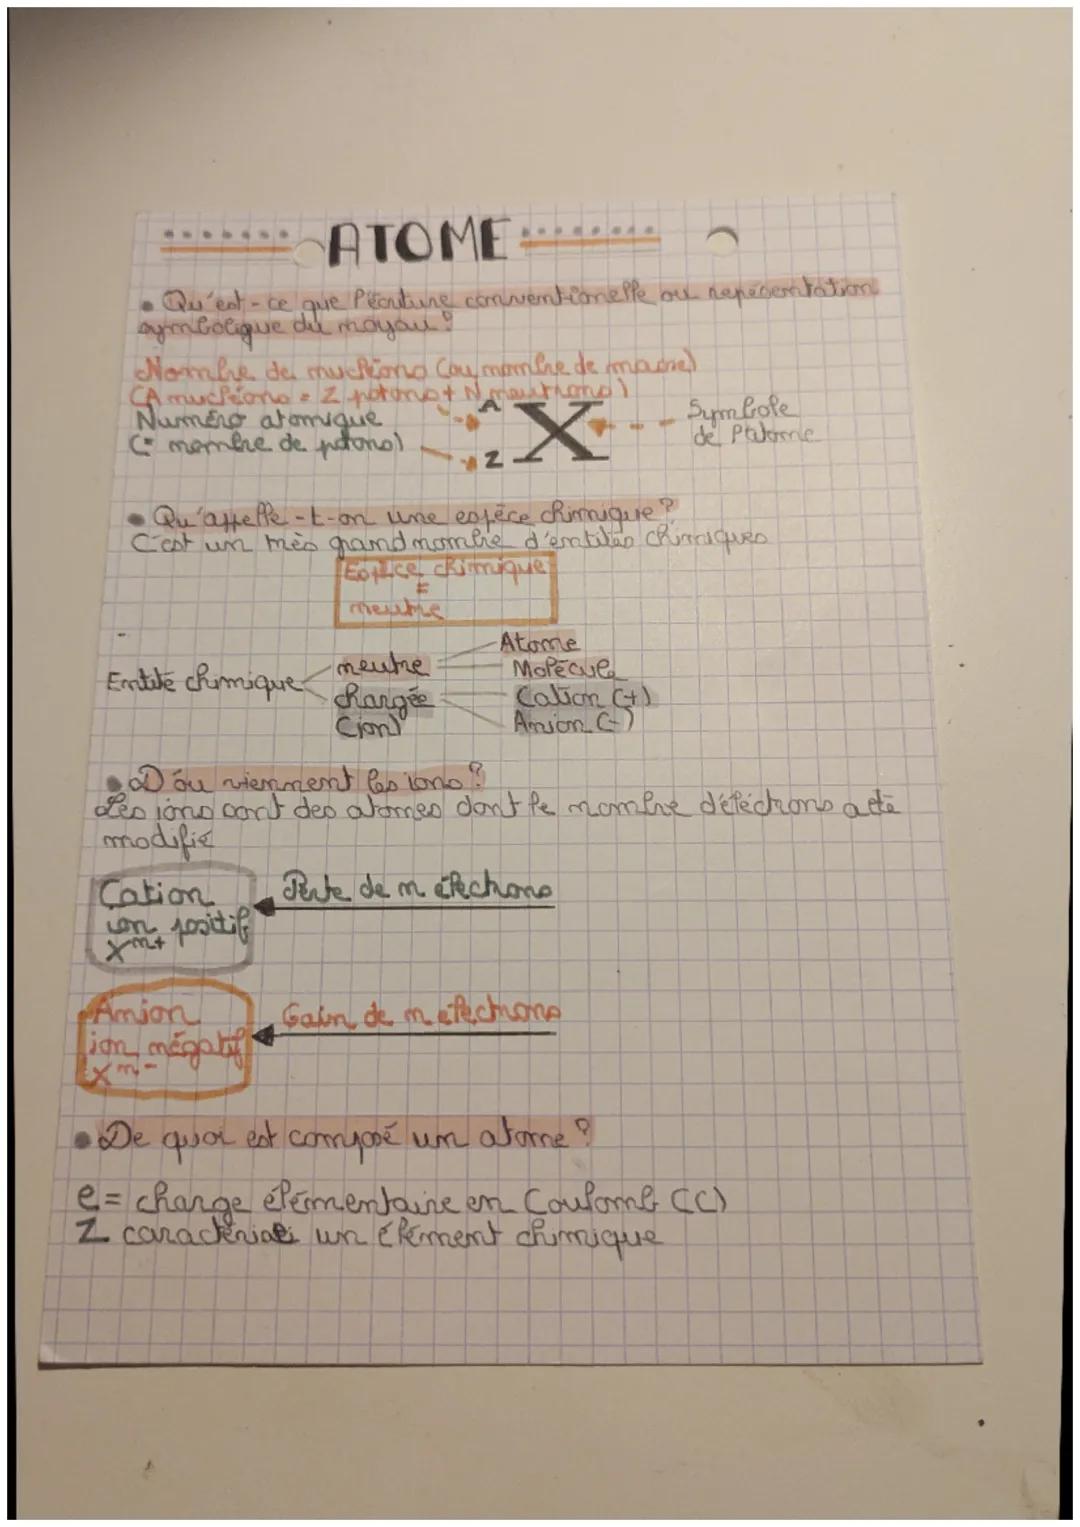 ATOME
• Qu'est-ce que l'écriture conventionelle ou représentation
symbolique du noyau ?
Nombre de nucléons (ou nombre de masse)
(A nucléons = Z protons + N neutrons)
Numéro atomique
(= nombre de protons)
A
Z
X
Symbole
de l'atome
• Qu'appelle-t-on une espèce chimique ?
C'est un très grand nombre d'entités chimiques
Espèce chimique
=
neutre
Entité chimique
neutre
chargée
(ion)
Atome
Molécule
Cation (+)
Anion (-)
• D'óu viennent les ions ?
Les ions sont des atomes dont le nombre d'électrons a été
modifié
Cation
ion positif
Xn+
Perte de n électrons
Anion
ion négatif
Xn-
Gain de n électrons
• De quoi est composé un atome ?
e = charge élémentaire en Coulomb (C)
Z caractérise un élément chimique